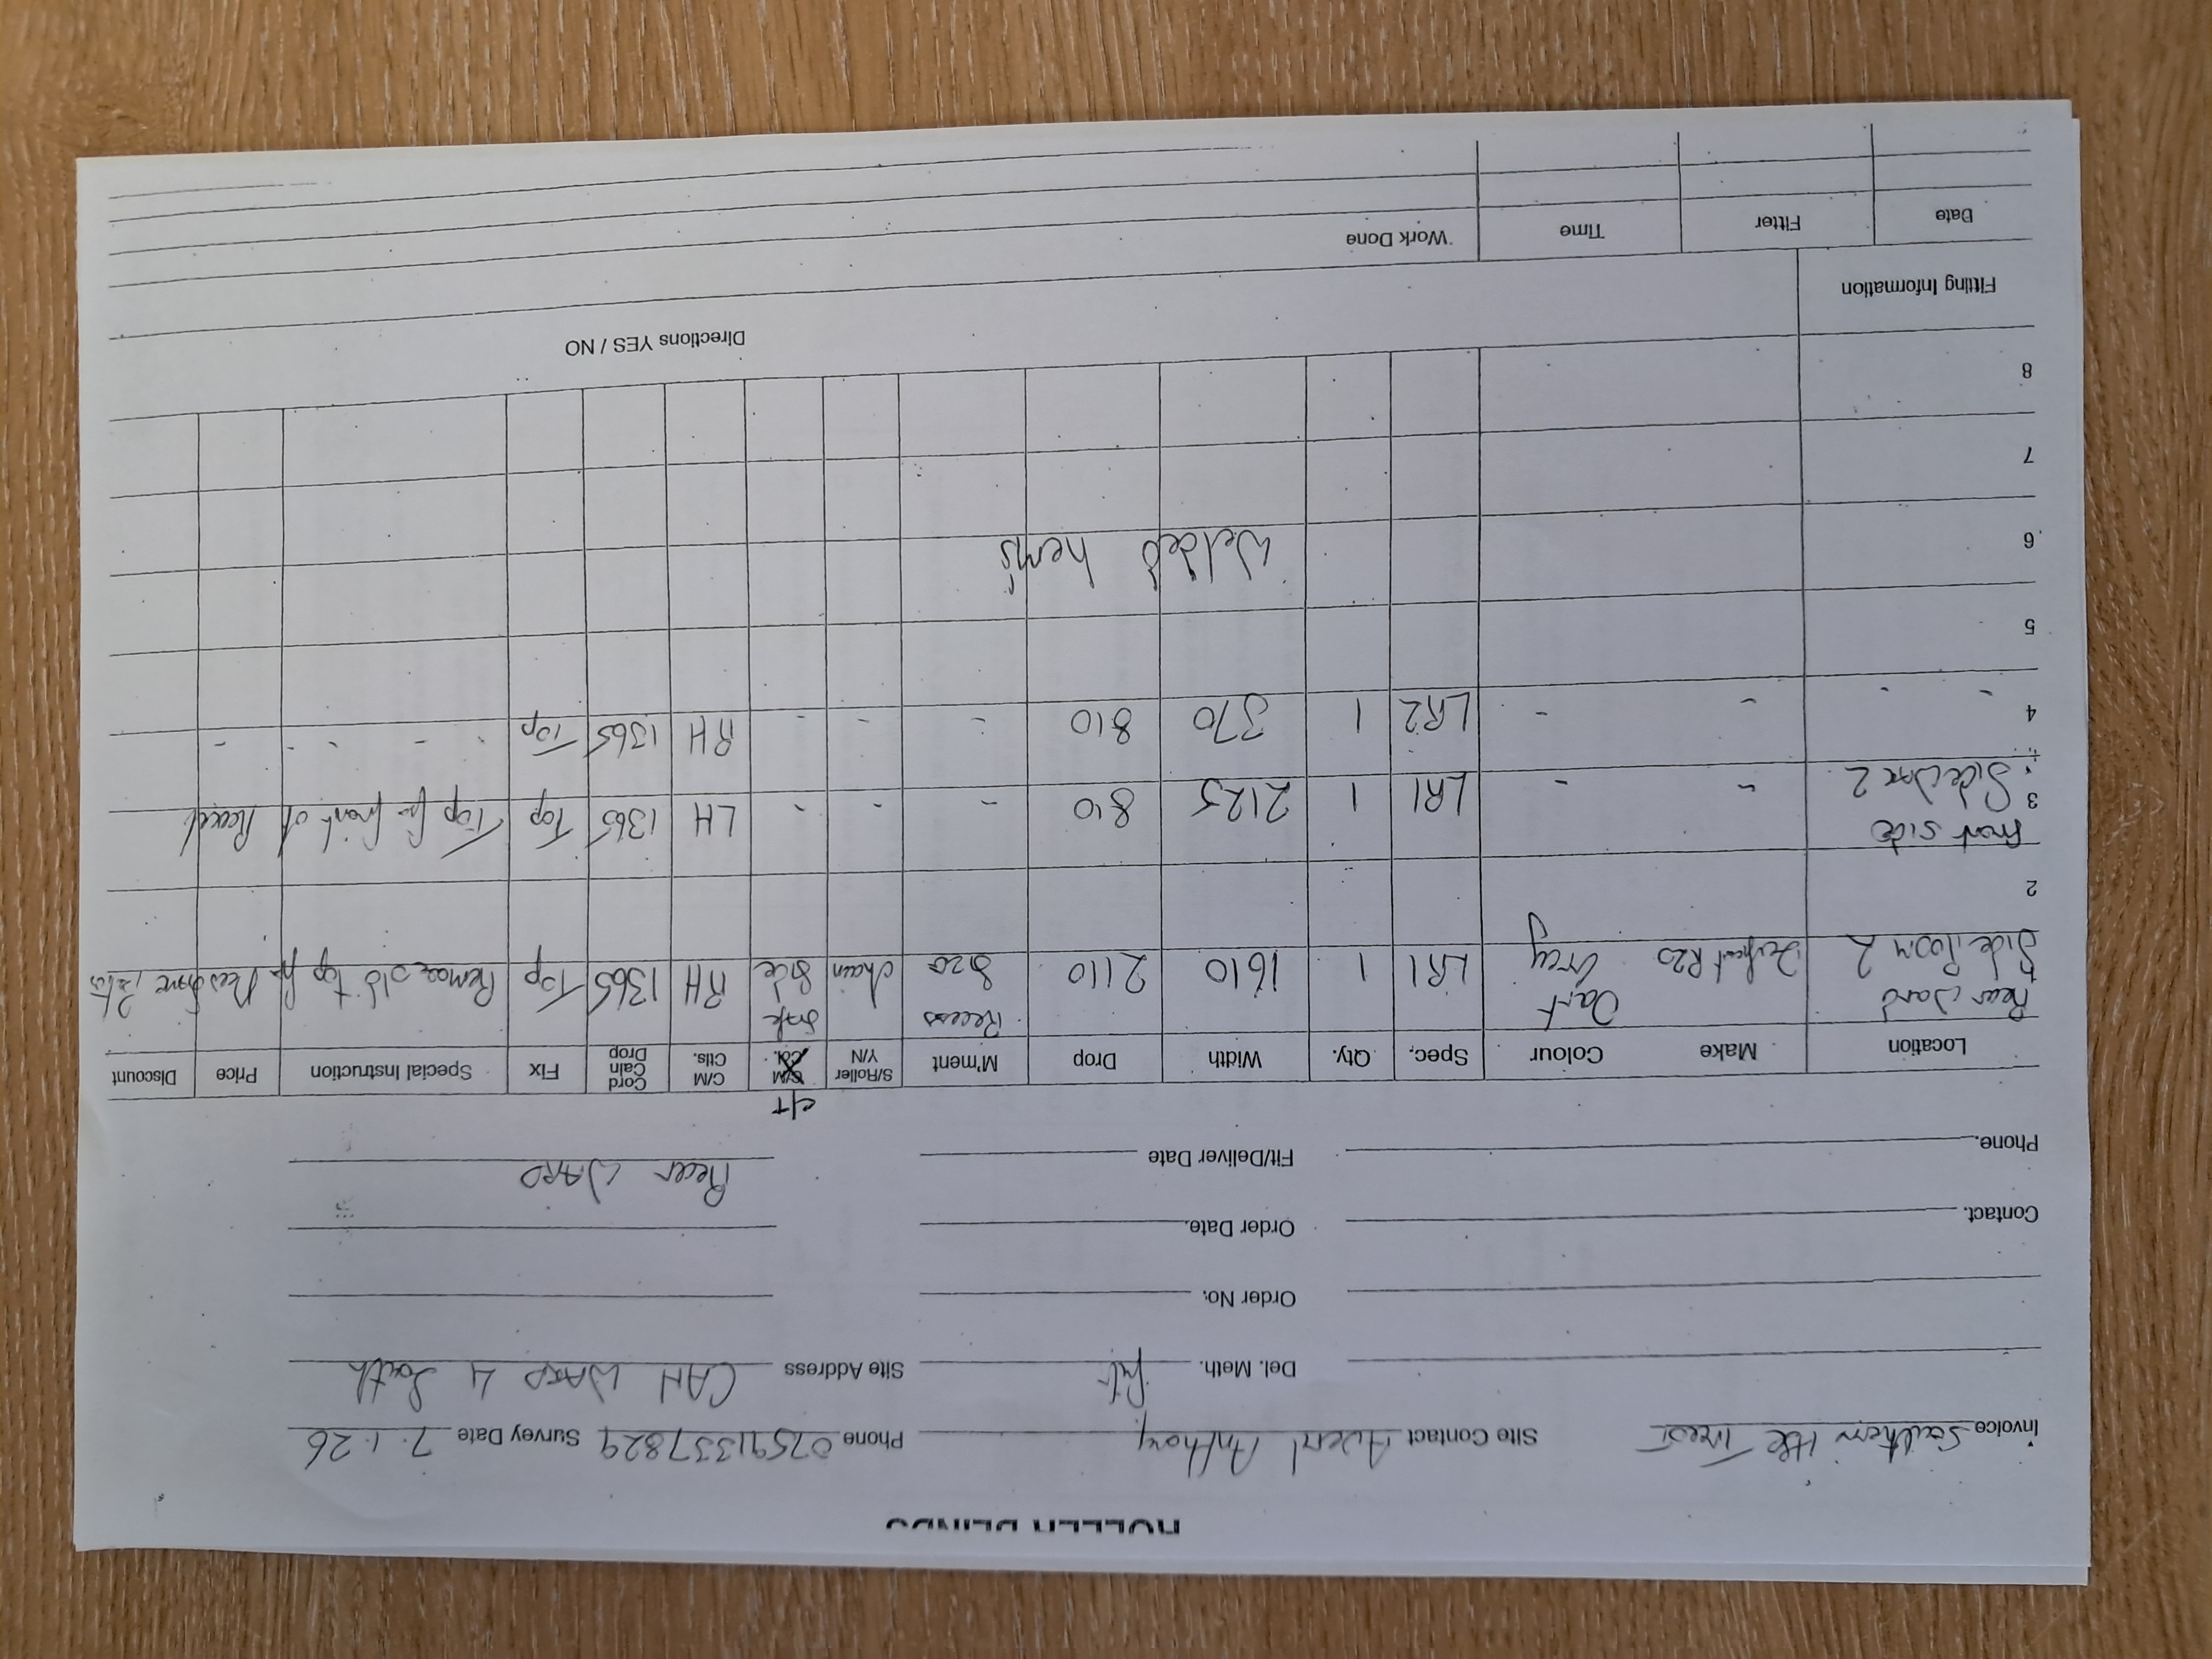 ROLLER BLINDS
Invoice Southern H&C Trust Site Contact Anthony Phone 07591337829 Survey Date 7.1.26
Del. Meth. Fit Site Address CAH WARD 4 South
Order No.
Contact. Order Date.
Phone. Fit/Deliver Date Rear WARD
C/T
Location Make Colour Spec. Qty. Width Drop M'ment S/Roller Y/N C/M Col. C/M Ctls. Cord Cain Drop Fix Special Instruction Price Discount
Rear Ward Dark Recess
Side Room 2 R20 Grey LR1 1 1610 2110 820 chain Side RH 1365 Top Remove old top fix
2
Front side
3 Side Ward 2 - - LR1 1 2125 810 - - - LH 1365 Top Top fix front of Recess
4 - - - - LR2 1 370 810 - - - RH 1365 Top - - - - -
5
6 Welded hems
7
8
Directions YES / NO
Fitting Information
Date Fitter Time Work Done